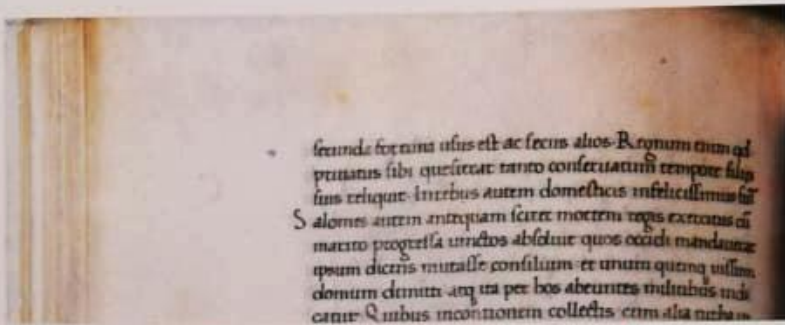 secunda fortuna usus est ac secus alios. Regnum enim qd
priuatus sibi quesierat tanto conseruatum tempore filijs
suis reliquit. In rebus autem domesticis infelicissimus fuit
Salomes autem antequam sciret mortem regis exercitus cū
marito progressa uinctos absoluit quos occidi mandauerat
ipsum dicens mutasse consilium et unum quenq uissum
domum dimitti atq ita per hos abeuntes militibus indi
catur. Quibus incontionem collectis cum alia turba